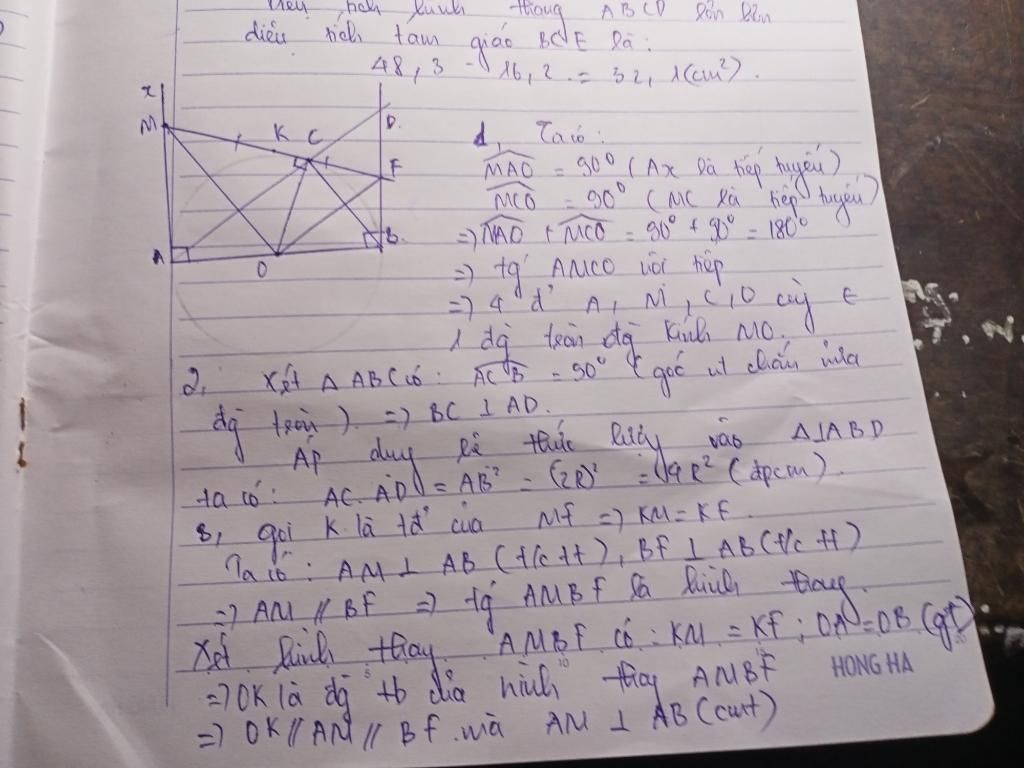 diện tích hình thang ABCD lớn hơn
diện tích tam giác BCE là:
48,3 - 16,2 = 32,1(cm²).
x
M K C D.
F
A O B.
1, Ta có:
MAO = 90° (Ax là tiếp tuyến)
MCO = 90° (MC là tiếp tuyến)
=> MAO + MCO = 90° + 90° = 180°
=> tg AMCO nội tiếp
=> 4 đ' A, M, C, O cùg ∈
1 đg tròn đg kính MO.
2, Xét Δ ABC có: ACB = 90° (góc nt chắn nửa
đg tròn) => BC ⊥ AD.
Áp dụg hệ thức lượg vào Δ⊥ABD
ta có: AC.AD = AB² = (2R)² = 4R² (đpcm).
3, gọi K là tđ' của MF => KM = KF.
Ta có: AM ⊥ AB (t/c tt), BF ⊥ AB (t/c tt)
=> AM // BF => tg AMBF là hình thang.
Xét hình thag AMBF có: KM = KF; OA = OB (gt)
=> OK là đg tb của hình thag AMBF
=> OK // AM // BF. mà AM ⊥ AB (cmt)
HONG HA